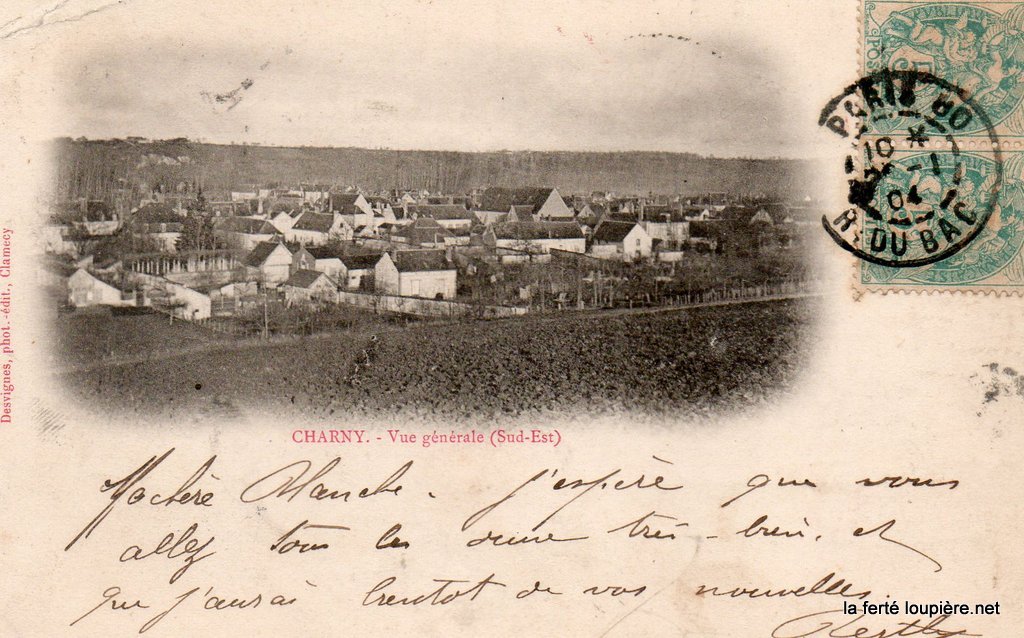 PARIS 80
10 *
-1
04
R. DU BAC
Desvignes, phot.-édit., Clamecy
CHARNY. - Vue générale (Sud-Est)
Ma chère Blanche. j'espère que vous
allez tous les deux très-bien, et
que j'aurai bientôt de vos nouvelles.
la ferté loupière.net